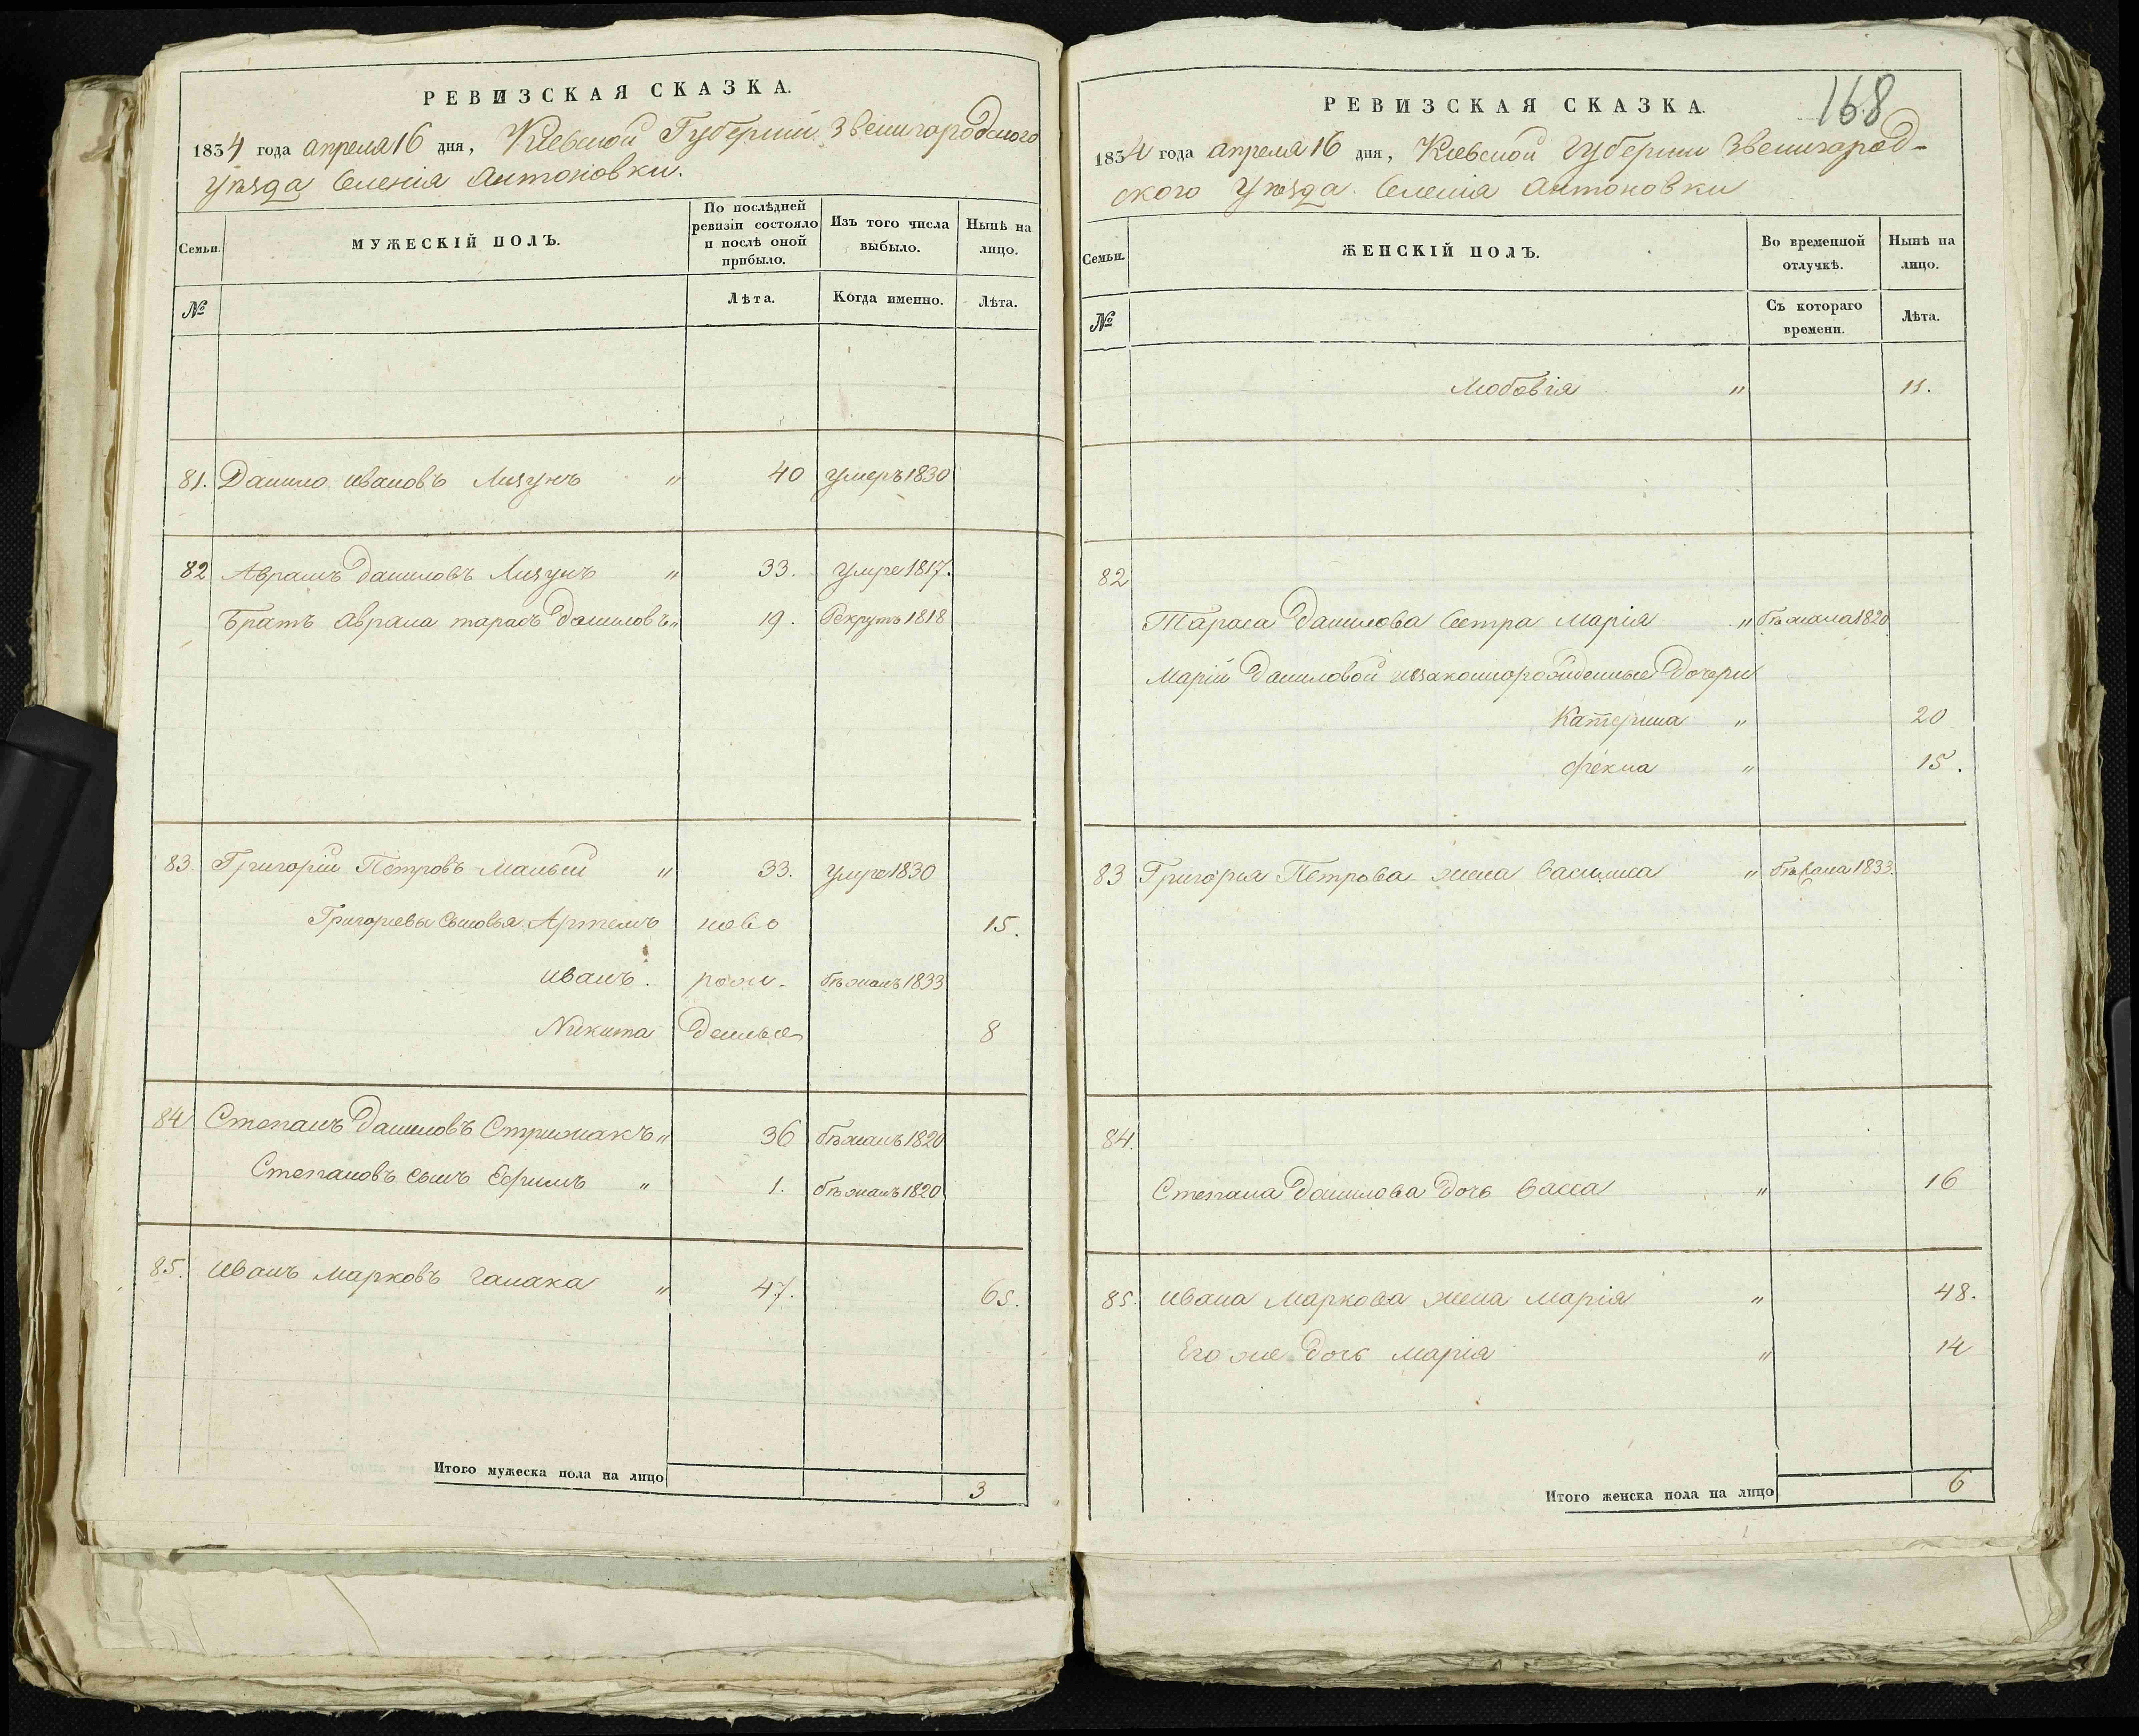 РЕВИЗСКАЯ СКАЗКА.
1834 года апреля 16 дня, Кіевской Губерніи Звенигородского
уѣзда Селенія Антоновки.
Семьи.
МУЖЕСКІЙ ПОЛЪ.
По послѣдней ревизіи состояло и послѣ оной прибыло.
Изъ того числа выбыло.
Нынѣ на лицо.
№
Лѣта.
Когда именно.
Лѣта.
81. Данило Ивановъ Лизунъ " 40 умеръ 1830
82 Аврамъ Даниловъ Лизунъ " 33. умре 1817.
Братъ Аврама тарасъ Даниловъ " 19. Рекрутъ 1818
83. Григорій Петровъ Малый " 33. умре 1830
Григориевы Сыновья Артемъ ново 15.
Иванъ. рож- бѣжалъ 1833
Никита денные 8
84 Степанъ Даниловъ Стрижакъ " 36 бѣжалъ 1820
Степановъ сынъ Ефимъ " 1. бѣжалъ 1820
85. Иванъ Марковъ 47. 65.
Итого мужеска пола на лицо 3
168
РЕВИЗСКАЯ СКАЗКА.
1834 года апреля 16 дня, Киевской Губернии Звенигород-
ского уѣзда Селенія Антоновки
Семьи.
ЖЕНСКІЙ ПОЛЪ.
Во временной отлучкѣ.
Нынѣ на лицо.
№
Съ котораго времени.
Лѣта.
"
82
Тараса Данилова Сестра Марія " бѣжала 1820
Маріи Даниловой незаконнорожденные Дочери
Катерина " 20
Фекла " 15.
83 Григория Петрова жена " 1833.
84.
Степана Данилова Дочь Васса " 16
85. Ивана Маркова жена Марія " 48.
Его же Дочь Марія " 14
Итого женска пола на лицо 6